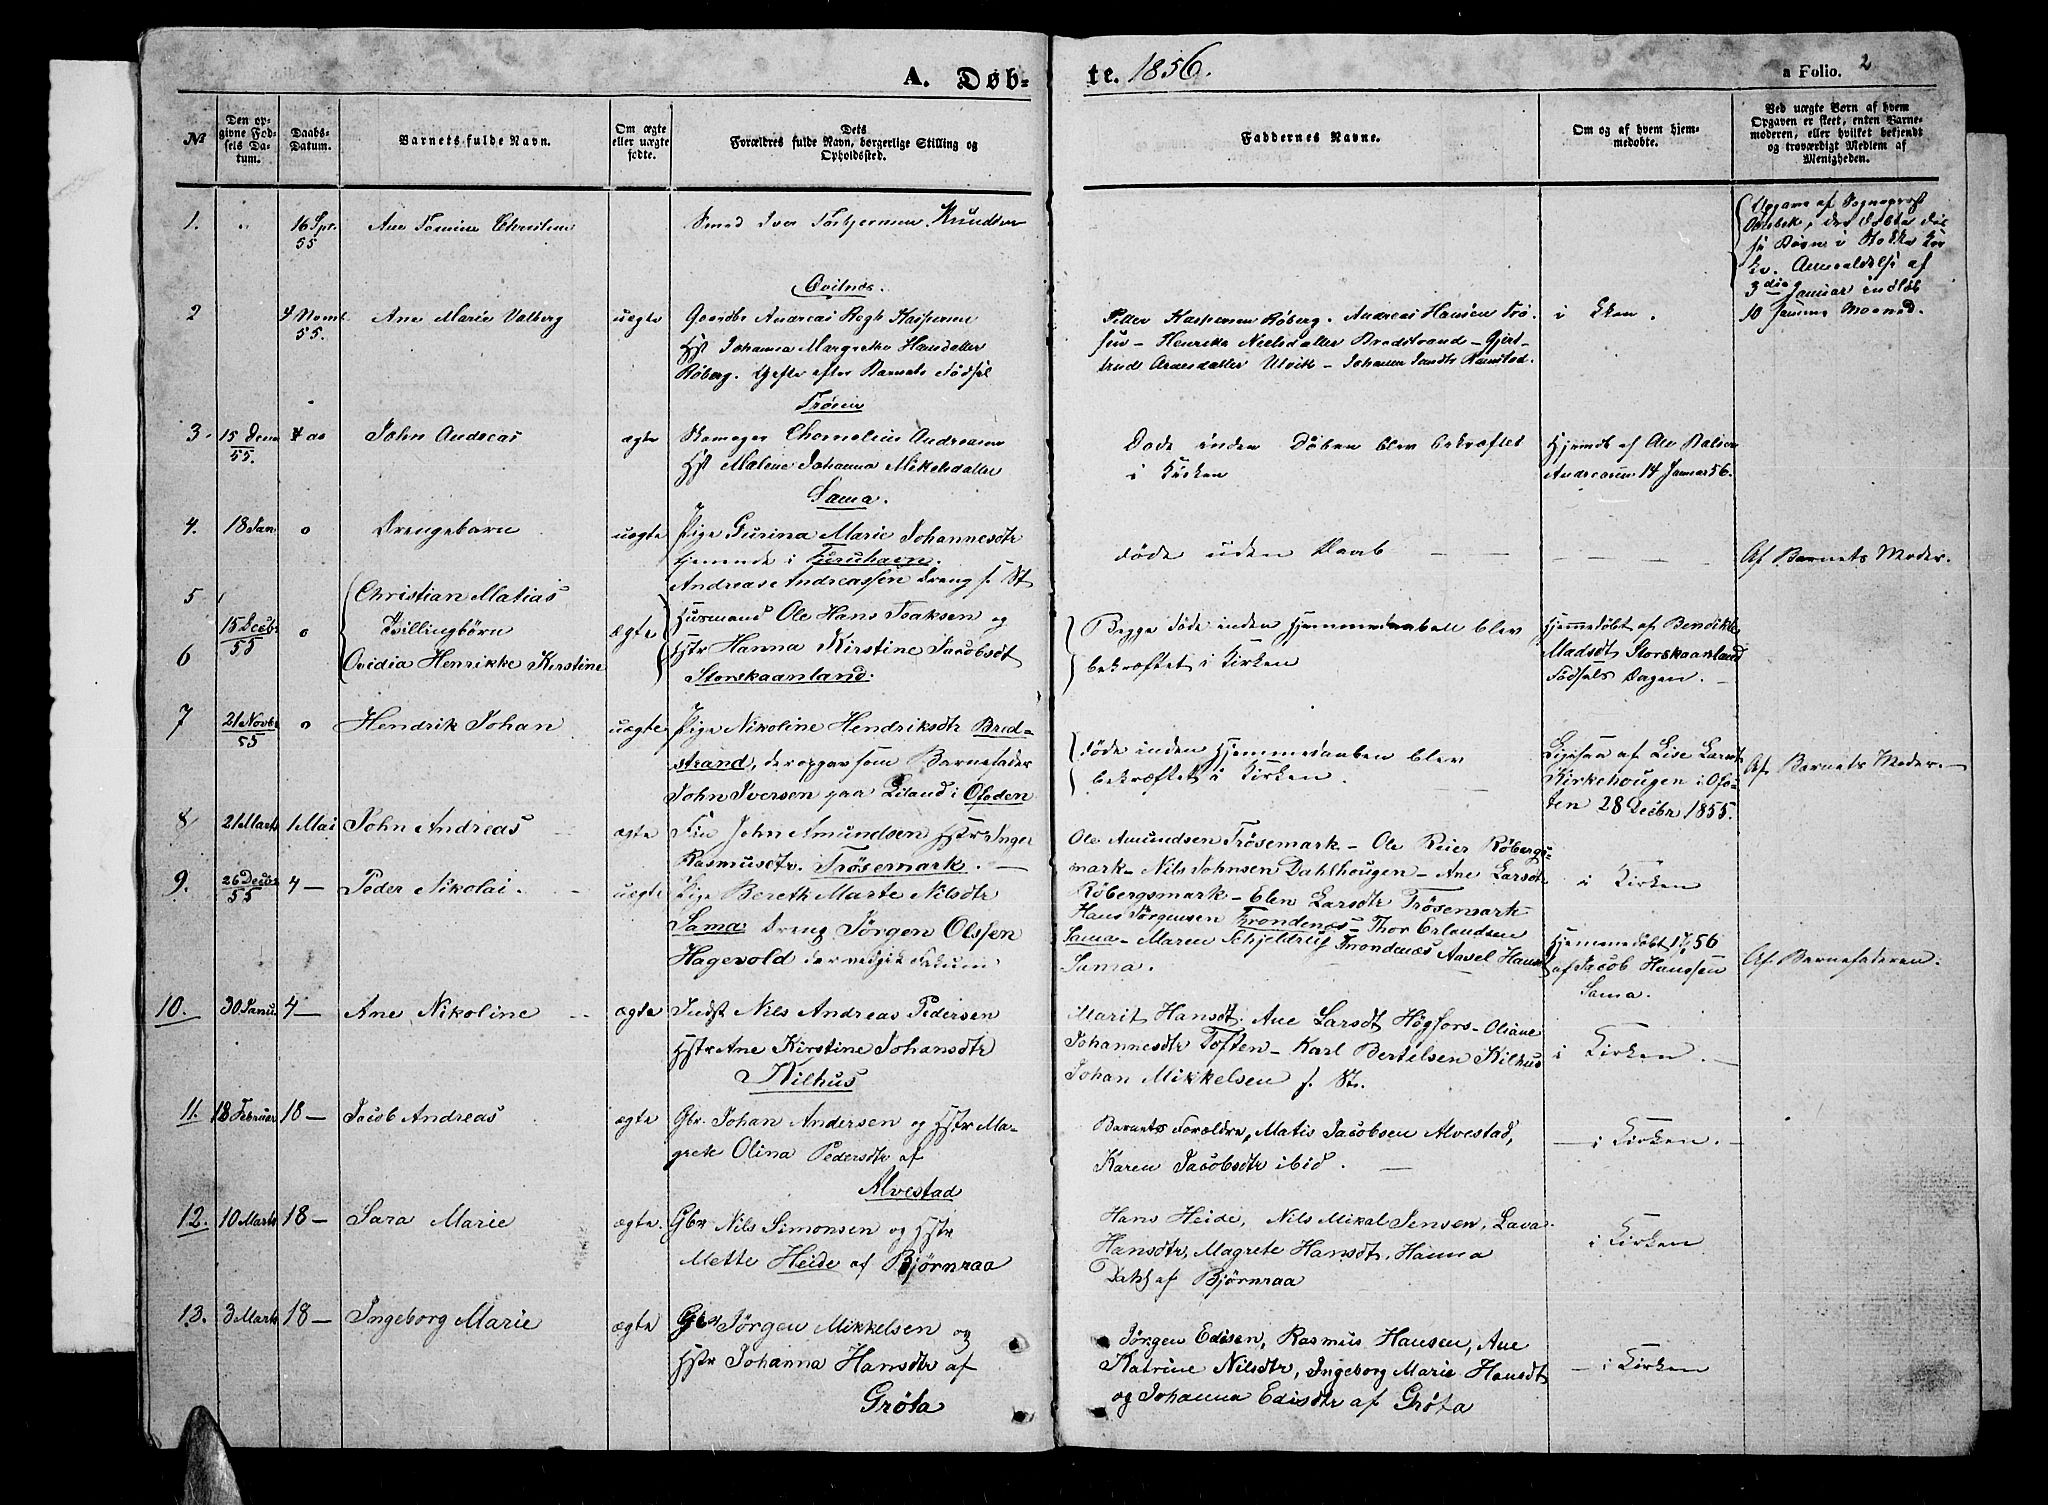 A. Døbte. 1856.
a Folio. 2
№
Den opgivne Fødsels Datum.
Daabs-Datum.
Barnets fulde Navn.
Om ægte eller uægte fødte.
Dets Forældres fulde Navn, borgerlige Stilling og Opholdssted.
Faddernes Navne.
Om og af hvem hjemmedøbte.
Ved uægte Børn af hvem Opgaven er skeet, enten Barnemoderen, eller hvilket bekjendt og troværdigt Medlem af Menigheden.
1. 16 55 Ane Christine
Smed Iver Knudsen
3die Januar
10 samme Maaned.
2 4 55. Ane Marie Valberg uægte
Andreas
Hst Johanna Margrethe Hansdatter
Røberg. efter Barnets Fødsel
Petter Kaspersen Røberg. Andreas Hansen
Henrika Nielsdatter Bredstrand – Gjert-
rud Utvik – Johanna
i
3. 15 55. John Andreas ægte
Andreasen
Hst Malene Johanna Mikelsdatter
Sama.
Døde inden Daaben blev bekræftet
i Kirken
Hjemdt af Ole
Andreasen 14 Januar 56.
4. 18 Jan o Drengebarn uægte
Pige Gurina Marie Johannesdtr
tjenende i
Andreas Andreassen Dreng f. St
døde uden Daab — — — —
Af Barnets Moder.
5 Christian Matias
15 Decbr 55 o Tvillingbørn ægte
6 Ovidia Henrikke Kirstine
Husmand Ole Hans Isaksen og
Hstr Hanna Kirstine Jacobsdt
Storskaanland.
Begge døde inden Hjemmedaaben blev
bekræftet i Kirken
Hjemmedøbt af Bendikte
Madsdt Storskaanland
Fødsels Dagen. –
7 21 Novbr 55 o Hendrik Johan uægte
Pige Nikoline Hendriksdtr Bred-
strand, der opgav som Barnefader
John Iversen paa Liland i Ofoden
døde inden Hjemmedaaben blev
bekræftet i Kirken.
Ligesaa af Lise Larsdt
Kirkehougen i Ofo-
ten 28 Decbr 1855.
Af Barnets Moder. –
8 21 Marts 1 Mai John Andreas ægte
John Amundsen Hstr Inger
Rasmusdtr. Trøsemark. –
Ole Amundsen Trøsemark – Ole Reier Røbergs-
mark – Nils Johnsen Dahlhougen – Ane Larsdtr
Røbergsmark – Elen Larsdtr Trøsemark
i Kirken
9. 26 Decbr 55 4 — Peder Nikolai. uægte
Pige Bereth Marte Nilsdtr
Sama Dreng Jørgen Olssen
Hagevold der vedgik Factum
Hans Jørgensen Trondenæs – Thor Erlandsen
Sama – Maren Schjeldrup Trondenæs Axsel Hans
Sama.
Hjemmedøbt 56
af Jacob Hanssen
Sama.
Af Barnefaderen.
10. 30 Janu. 4 — Ane Nikoline ægte
Indst Nils Andreas Pedersen
Hstr Ane Kirstine Johansdtr
Kilhus
Marit Hansdt. Ane Larsdt Høgfors – Oliane
Johannesdtr Toften – Karl Bertelsen Kilhus
Johan Mikkelsen f. St.
i Kirken.
11. 18 Februar 18 — Jacob Andreas ægte
Gbr. Johan Andersen og Hstr Ma-
grete Olina Pedersdtr af
Alvestad
Barnets Forældre, Matis Jacobsen Alvestad,
Karen Jacobsdtr ibid.
— i Kirken. –
12. 10 Marts 18 — Sara Marie ægte.
Gbr Nils Simonsen og Hstr
Mette Heide af Bjørnraa
Hans Heide, Nils Mikal Jensen, Lava
Hansdtr, Magrete Hansdt, Hanna
Dahl af Bjørnraa
i Kirken
13. 3 Marts 18 — Ingeborg Marie ægte
Gbr Jørgen Mikkelsen og
Hstr Johanna Hansdtr af
Grøta
Jørgen Edisen, Rasmus Hansen, Ane
Katrine Nilsdtr, Ingeborg Marie Hansdt
og Johanna Edisdtr af Grøta
— i Kirken